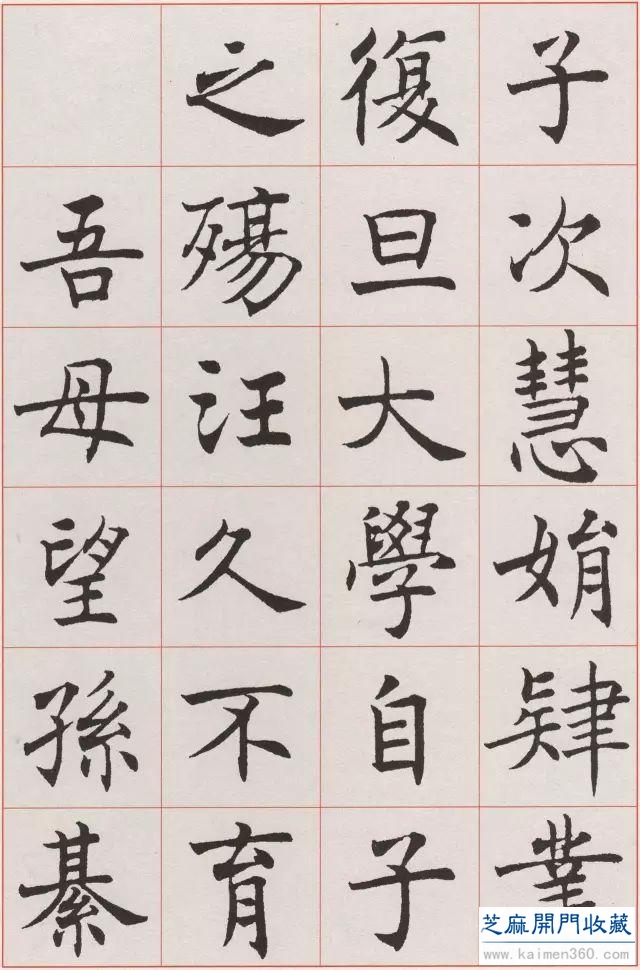 子次慧娟肄業
復旦大學自子
之殤汪久不育
吾母望孫綦
芝麻開門收藏
www.kaimen360.com